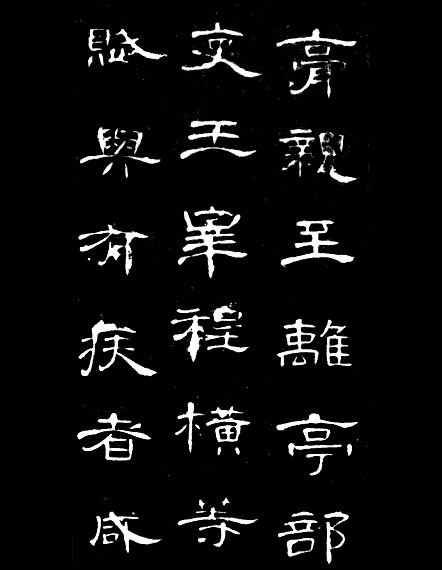 膏親至離亭部
吏王皋程橫等
賦與有疾者咸